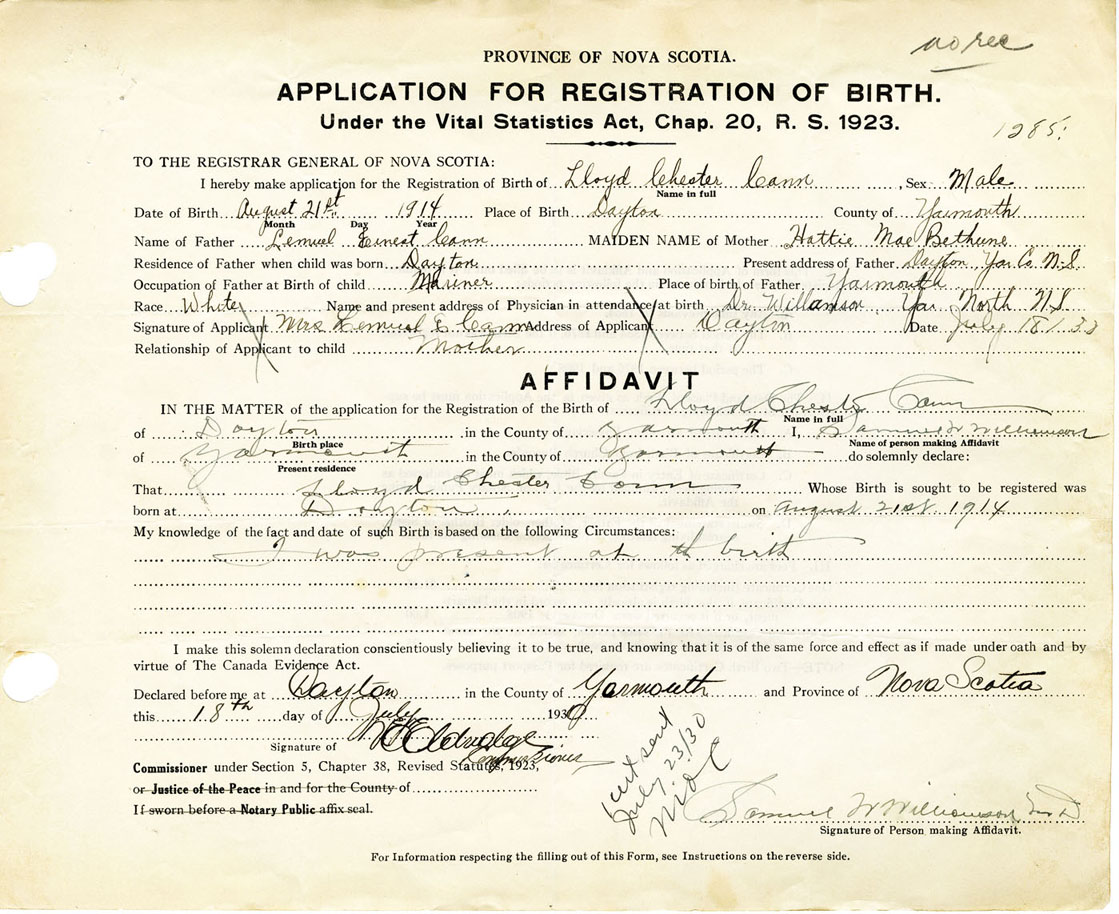 no rec
PROVINCE OF NOVA SCOTIA.
APPLICATION FOR REGISTRATION OF BIRTH.
Under the Vital Statistics Act, Chap. 20, R. S. 1923.
1285
TO THE REGISTRAR GENERAL OF NOVA SCOTIA:
I hereby make application for the Registration of Birth of Lloyd Chester Cann, Sex Male
Name in full
Date of Birth August 21st 1914 Place of Birth Dayton County of Yarmouth
Month Day Year
Name of Father Lemuel Ernest Cann MAIDEN NAME of Mother Hattie Mae Bethune
Residence of Father when child was born Dayton Present address of Father Dayton Yar Co. N.S
Occupation of Father at Birth of child Mariner Place of birth of Father Yarmouth
Race White Name and present address of Physician in attendance at birth Dr. Williamson Yar North N S
Signature of Applicant Mrs Lemuel E Cann Address of Applicant Dayton Date July 18/30
Relationship of Applicant to child Mother
AFFIDAVIT
IN THE MATTER of the application for the Registration of the Birth of Lloyd Chester Cann
Name in full
of Dayton in the County of Yarmouth I, Samuel W Williamson
Birth place Name of person making Affidavit
of Yarmouth in the County of Yarmouth do solemnly declare:
Present residence
That Lloyd Chester Cann Whose Birth is sought to be registered was
born at Dayton on August 21st 1914
My knowledge of the fact and date of such Birth is based on the following Circumstances:
I was present at th birth
I make this solemn declaration conscientiously believing it to be true, and knowing that it is of the same force and effect as if made under oath and by
virtue of The Canada Evidence Act.
Declared before me at Dayton in the County of Yarmouth and Province of Nova Scotia
this 18th day of July 1930
Signature of Eldridge
Commissioner
Commissioner under Section 5, Chapter 38, Revised Statutes, 1923,
or Justice of the Peace in and for the County of
If sworn before a Notary Public affix seal.
Cert sent
July 23/30
Samuel W Williamson M D
Signature of Person making Affidavit.
For Information respecting the filling out of this Form, see Instructions on the reverse side.